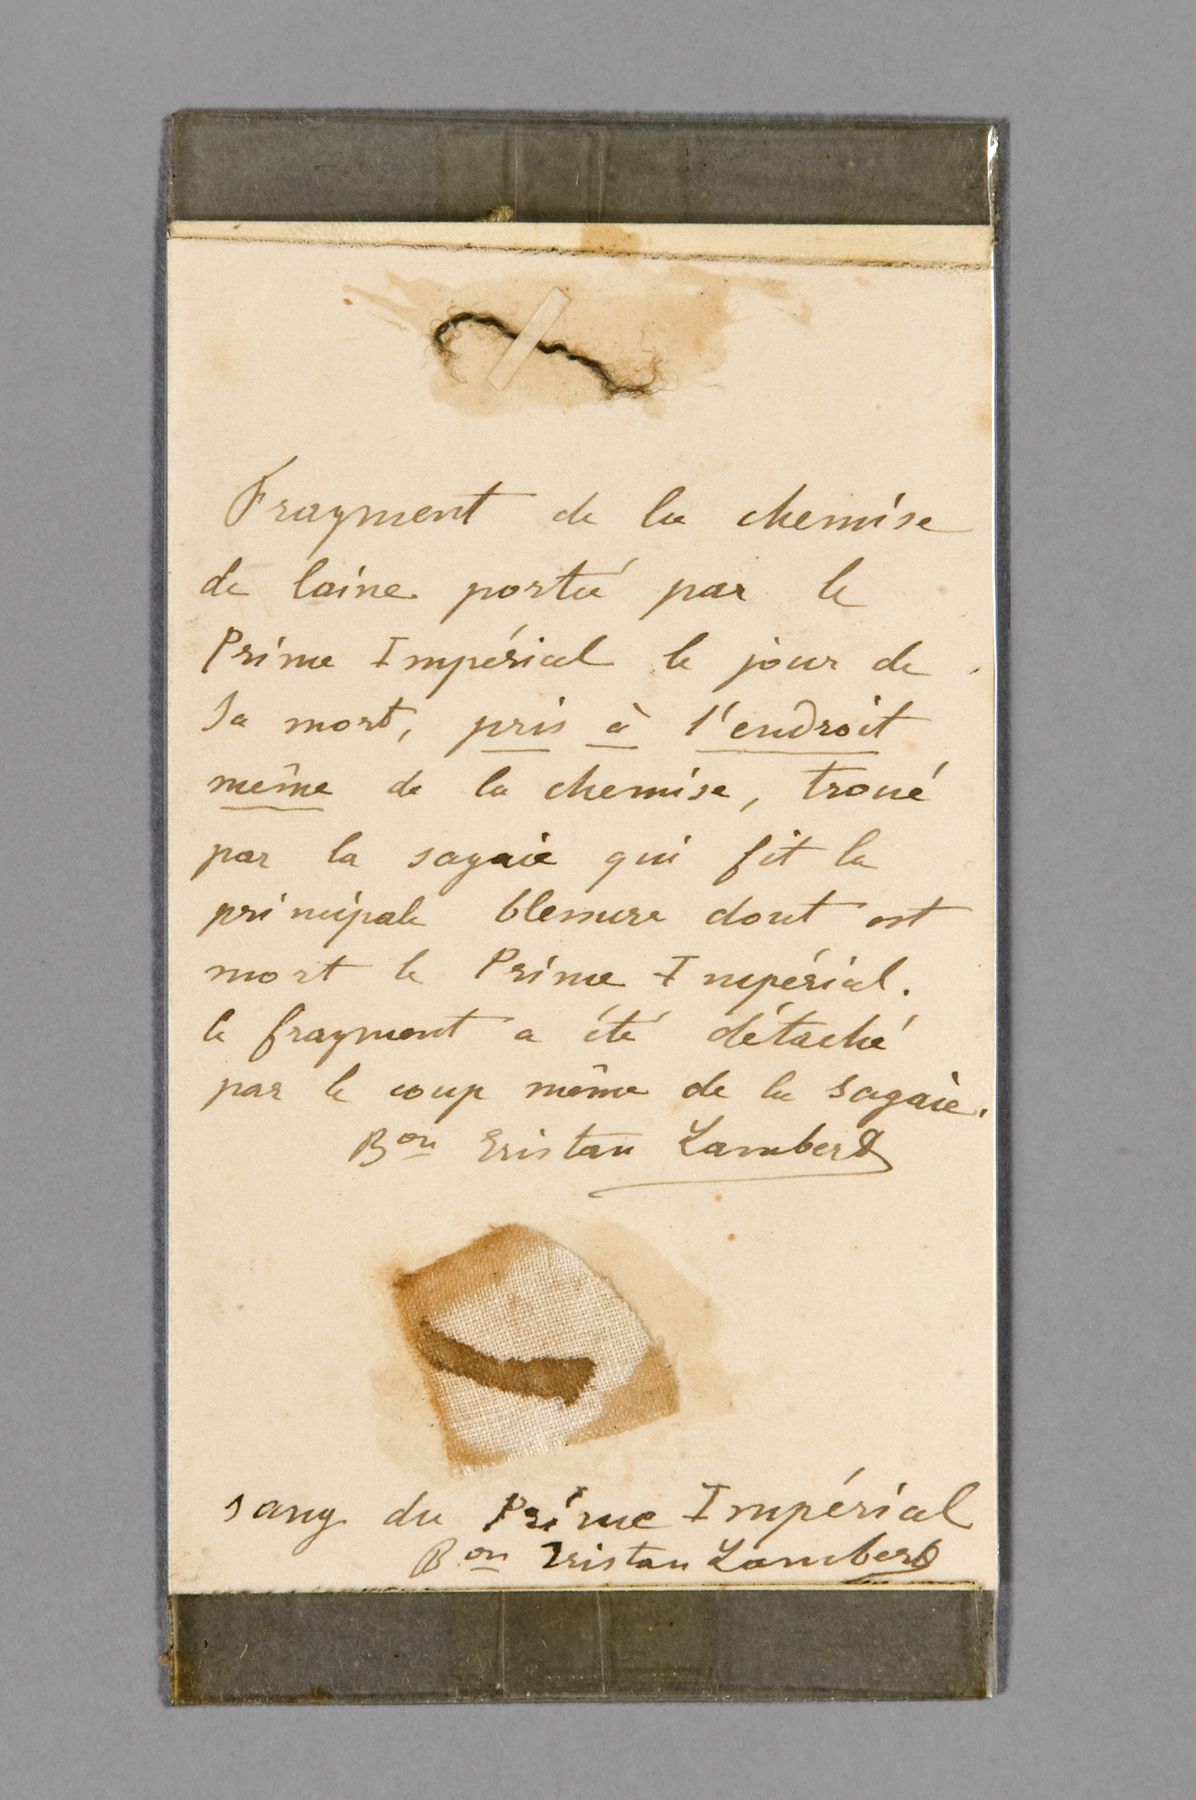 Fragment de la chemise
de laine portée par le
Prince Impérial le jour de
sa mort, pris à l'endroit
même de la chemise, troué
par la sagaie qui fit la
principale blessure dont est
mort le Prince Impérial.
Ce fragment a été détaché
par le coup même de la sagaie.
Bon Tristan Lambert
sang du Prince Impérial
Bon Tristan Lambert